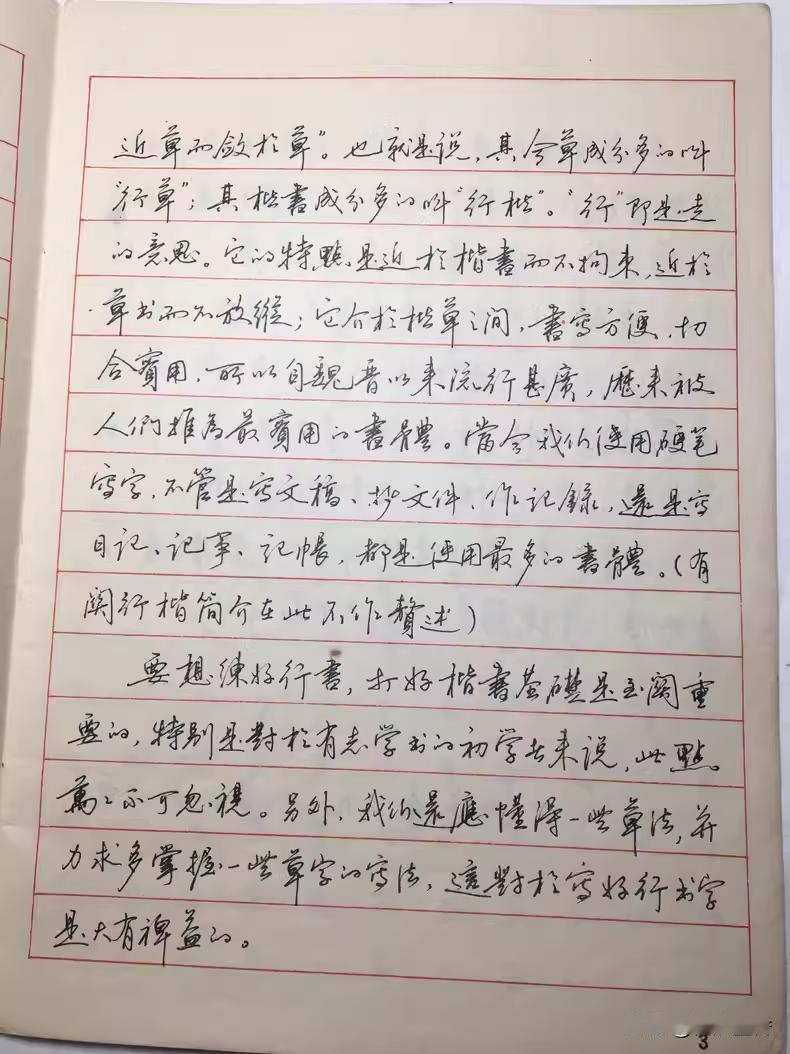 近草而斂於草”。也就是说，其今草成分多的叫
“行草”；其楷書成分多的叫“行楷”。“行”即是走
的意思。它的特點是近於楷書而不拘束，近於
草书而不放縱；它介於楷草之间，書寫方便，切
合實用，所以自魏晋以来流行甚廣，歷来被
人们推為最實用的書體。當今我们使用硬笔
寫字，不管是寫文稿、抄文件、作记録，還是寫
日记、记事、记帳，都是使用最多的書體。（有
関行楷简介在此不作贅述）
要想練好行書，打好楷書基礎是至関重
要的，特别是對於有志学书的初学者来说，此點
萬萬不可忽視。另外，我们還應懂得一些草法，并
力求多掌握一些草字的寫法，這對於寫好行书字
是大有裨益的。
3